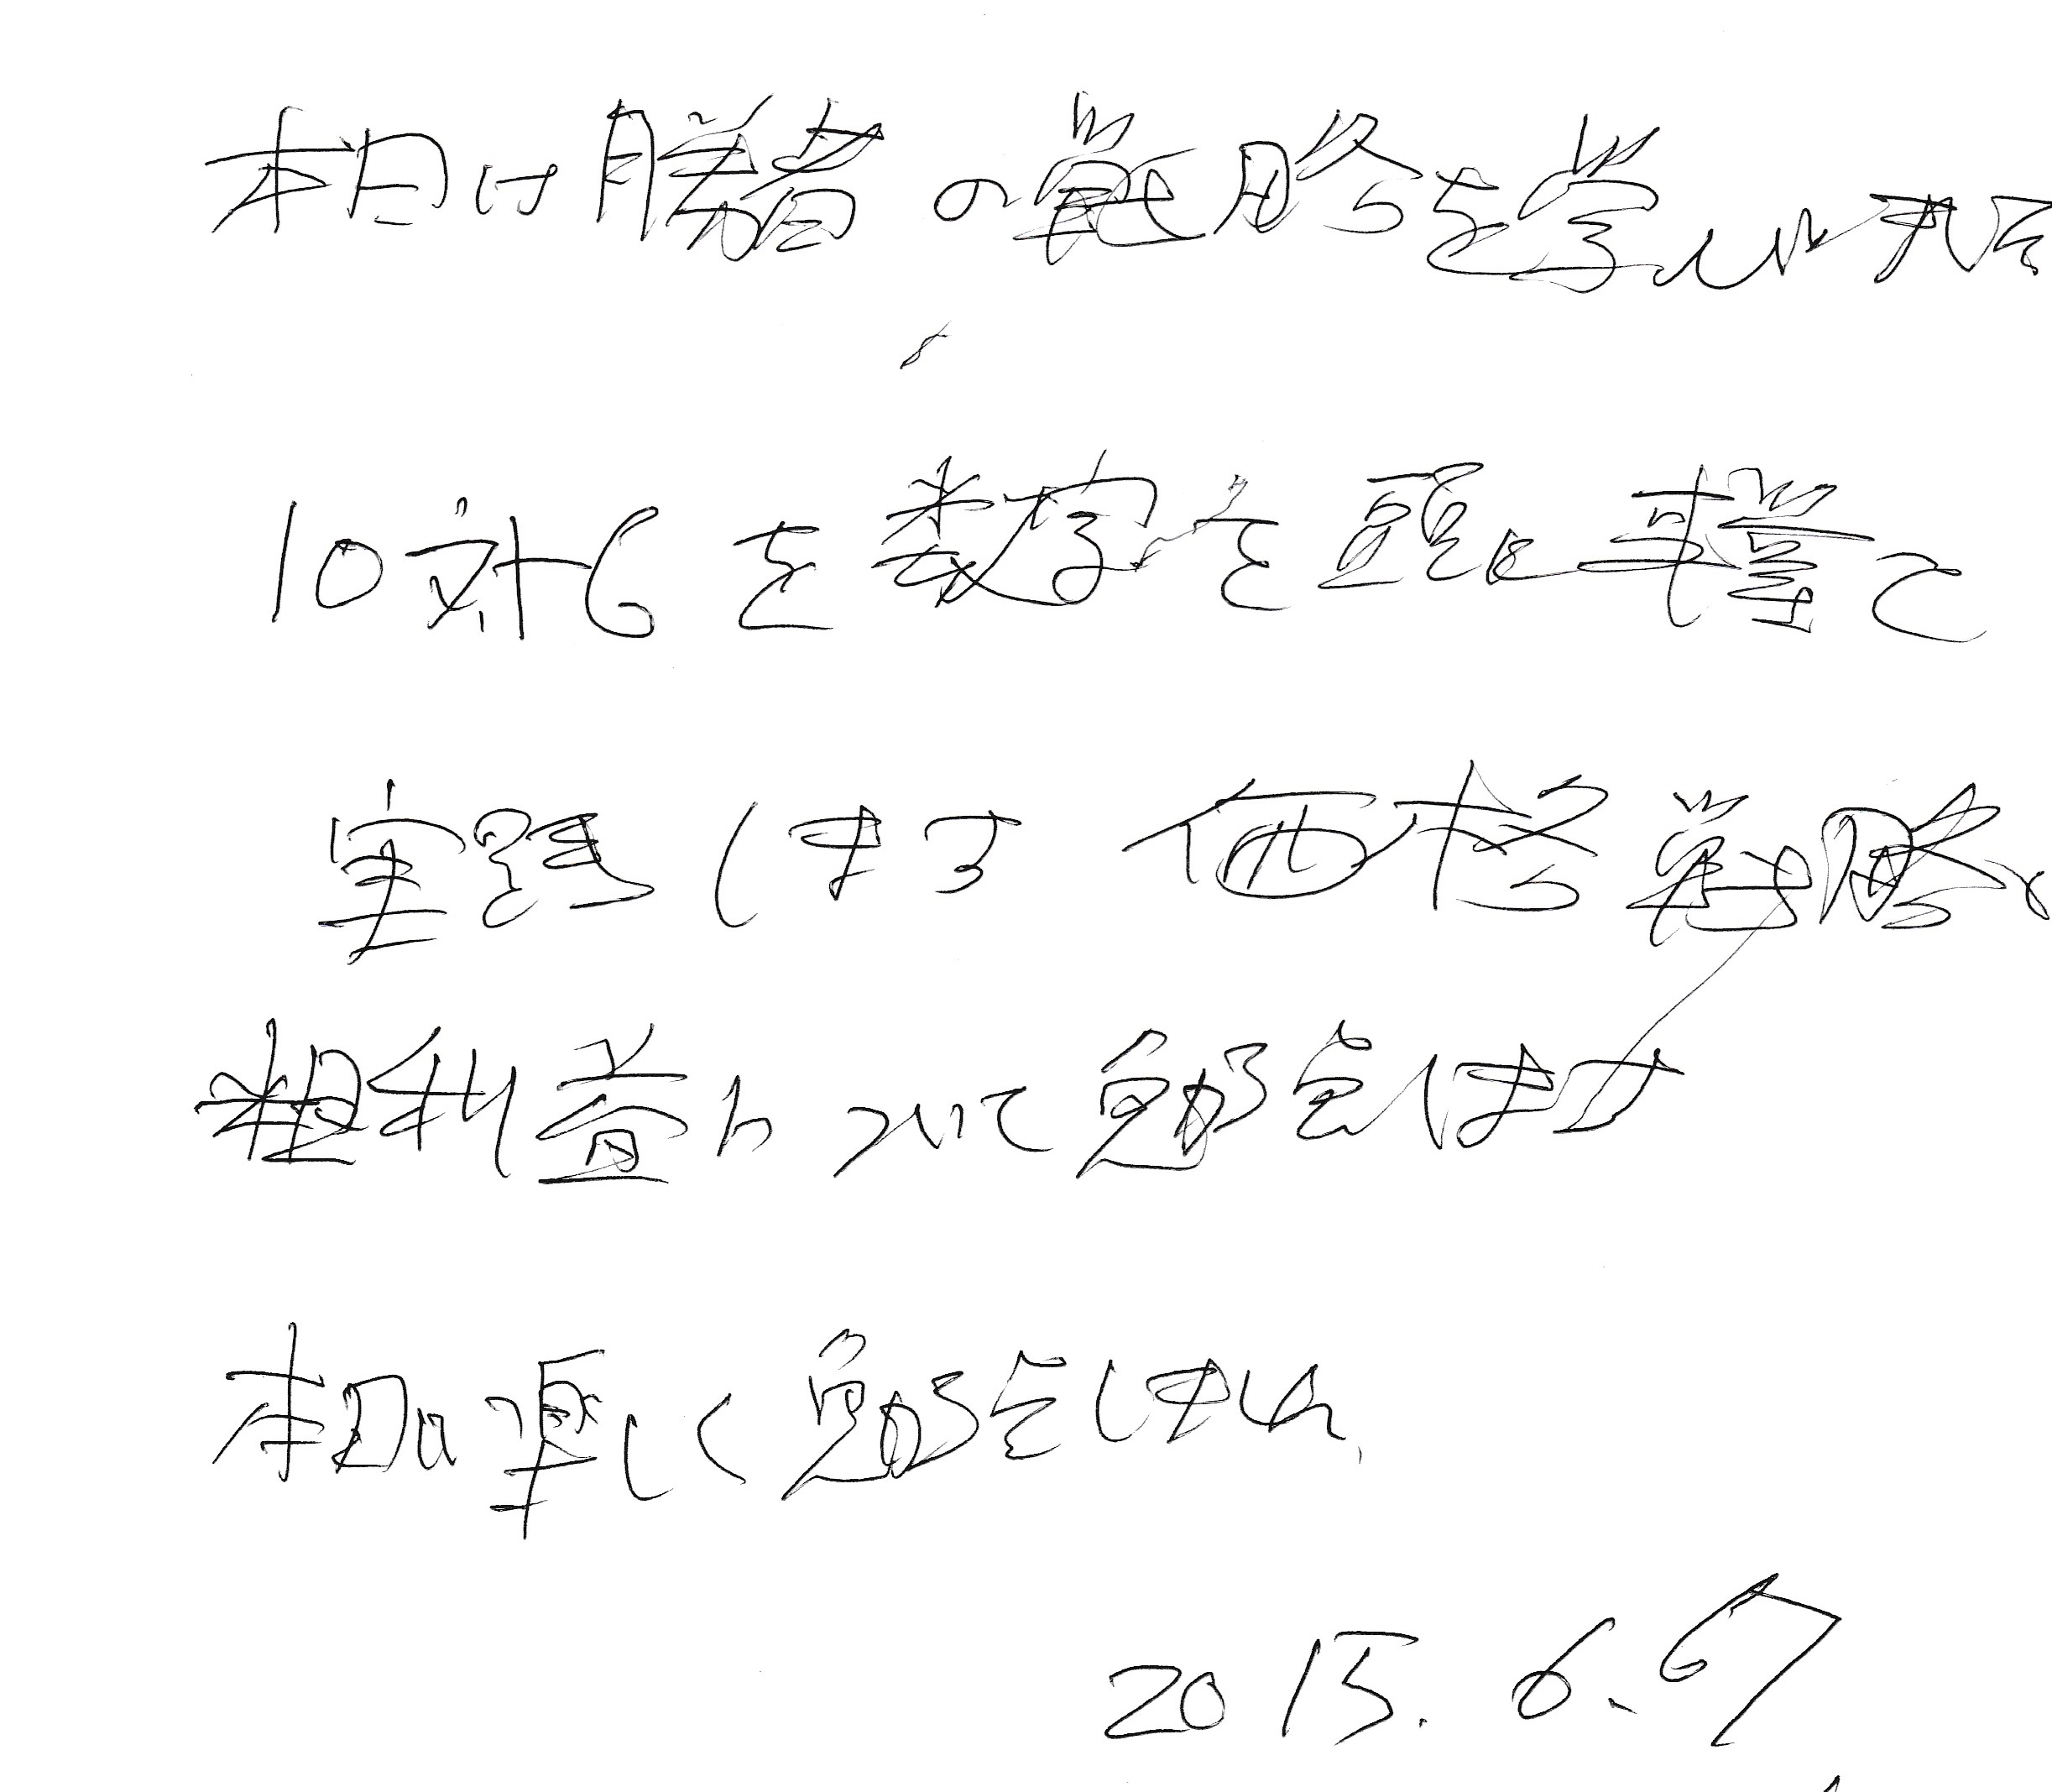 本日は勝者の戦略を学い
10対6を数字を頭に
実践します 価格戦略、
粗利益について勉強します
本日は楽しく勉強しました
2015. 6.